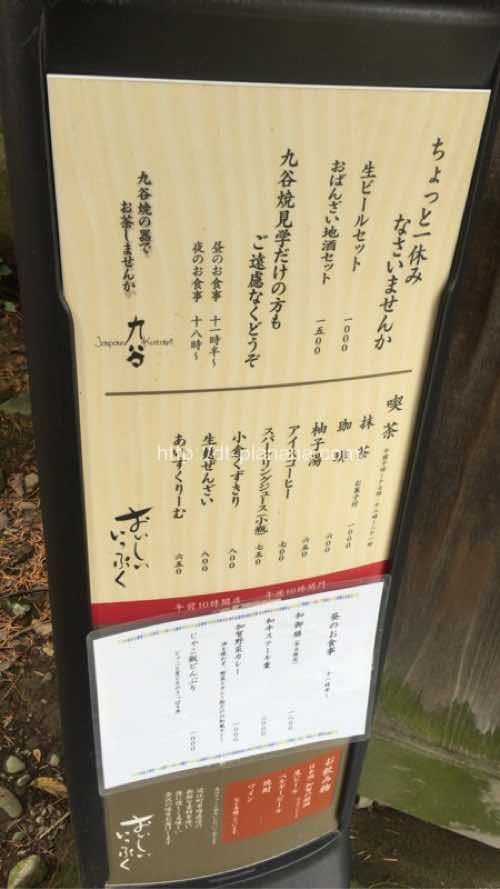 ちょっと一休み
なさいませんか
生ビールセット 一〇〇〇
おばんざい地酒セット 一五〇〇
九谷焼見学だけの方も
ご遠慮なくどうぞ
昼のお食事 十一時半〜
夜のお食事 十八時〜
九谷焼の器で
お茶しませんか
九谷
喫茶
抹茶 お菓子付 一〇〇〇
珈琲 六〇〇
柚子湯 六五〇
アイスコーヒー 七〇〇
スパークリングジュース(小瓶) 七五〇
小倉くずきり 八〇〇
生麩ぜんざい 八〇〇
あいすくりーむ 六五〇
おいしい
いっぷく
http://dt-planasia.com
午前10時開店
昼のお食事 十一時半〜
和御膳
和牛ステーキ重
加賀野菜カレー 一〇〇〇
じゃこ飯どんぶり 一〇〇〇
お飲み物
日本酒
生ビール
ベルギービール
焼酎
ワイン
おいしい
いっぷく